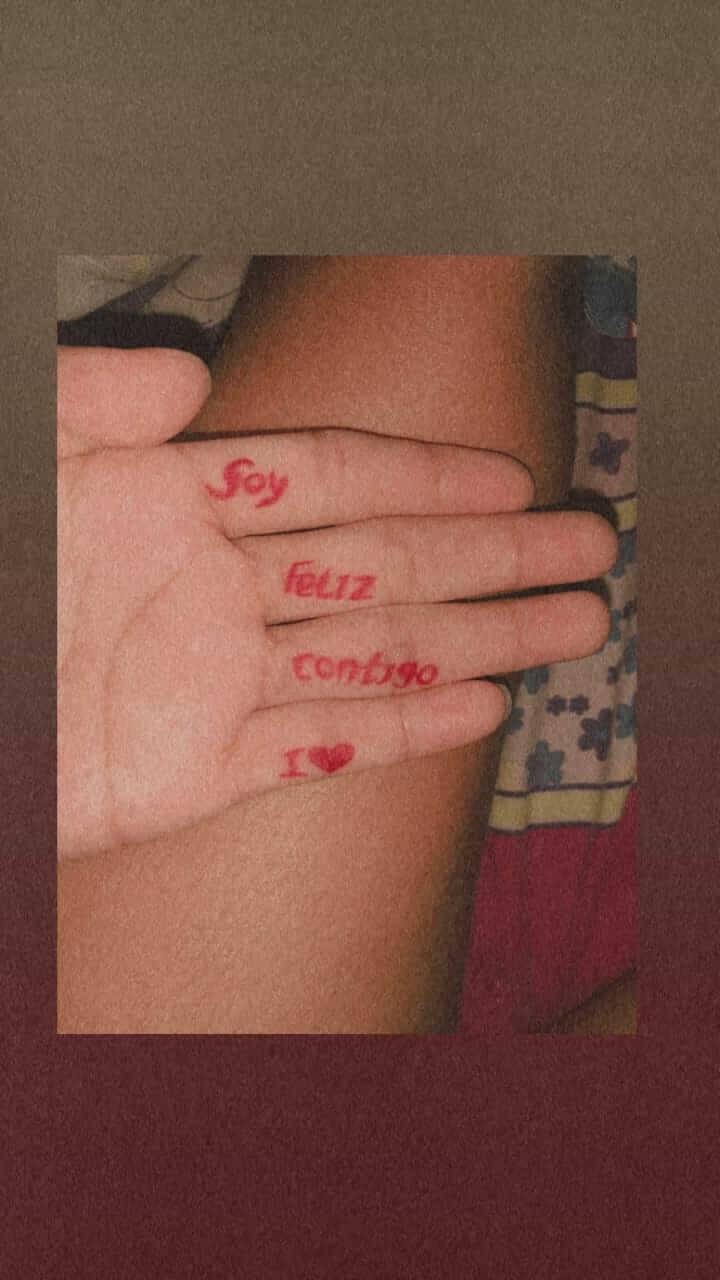 Soy
Feliz
contigo
I ❤